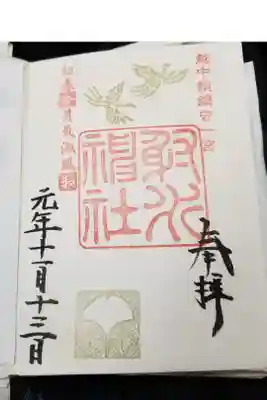 越中総鎮守一宮
奉拝
射水
神社
元年十一月十三日